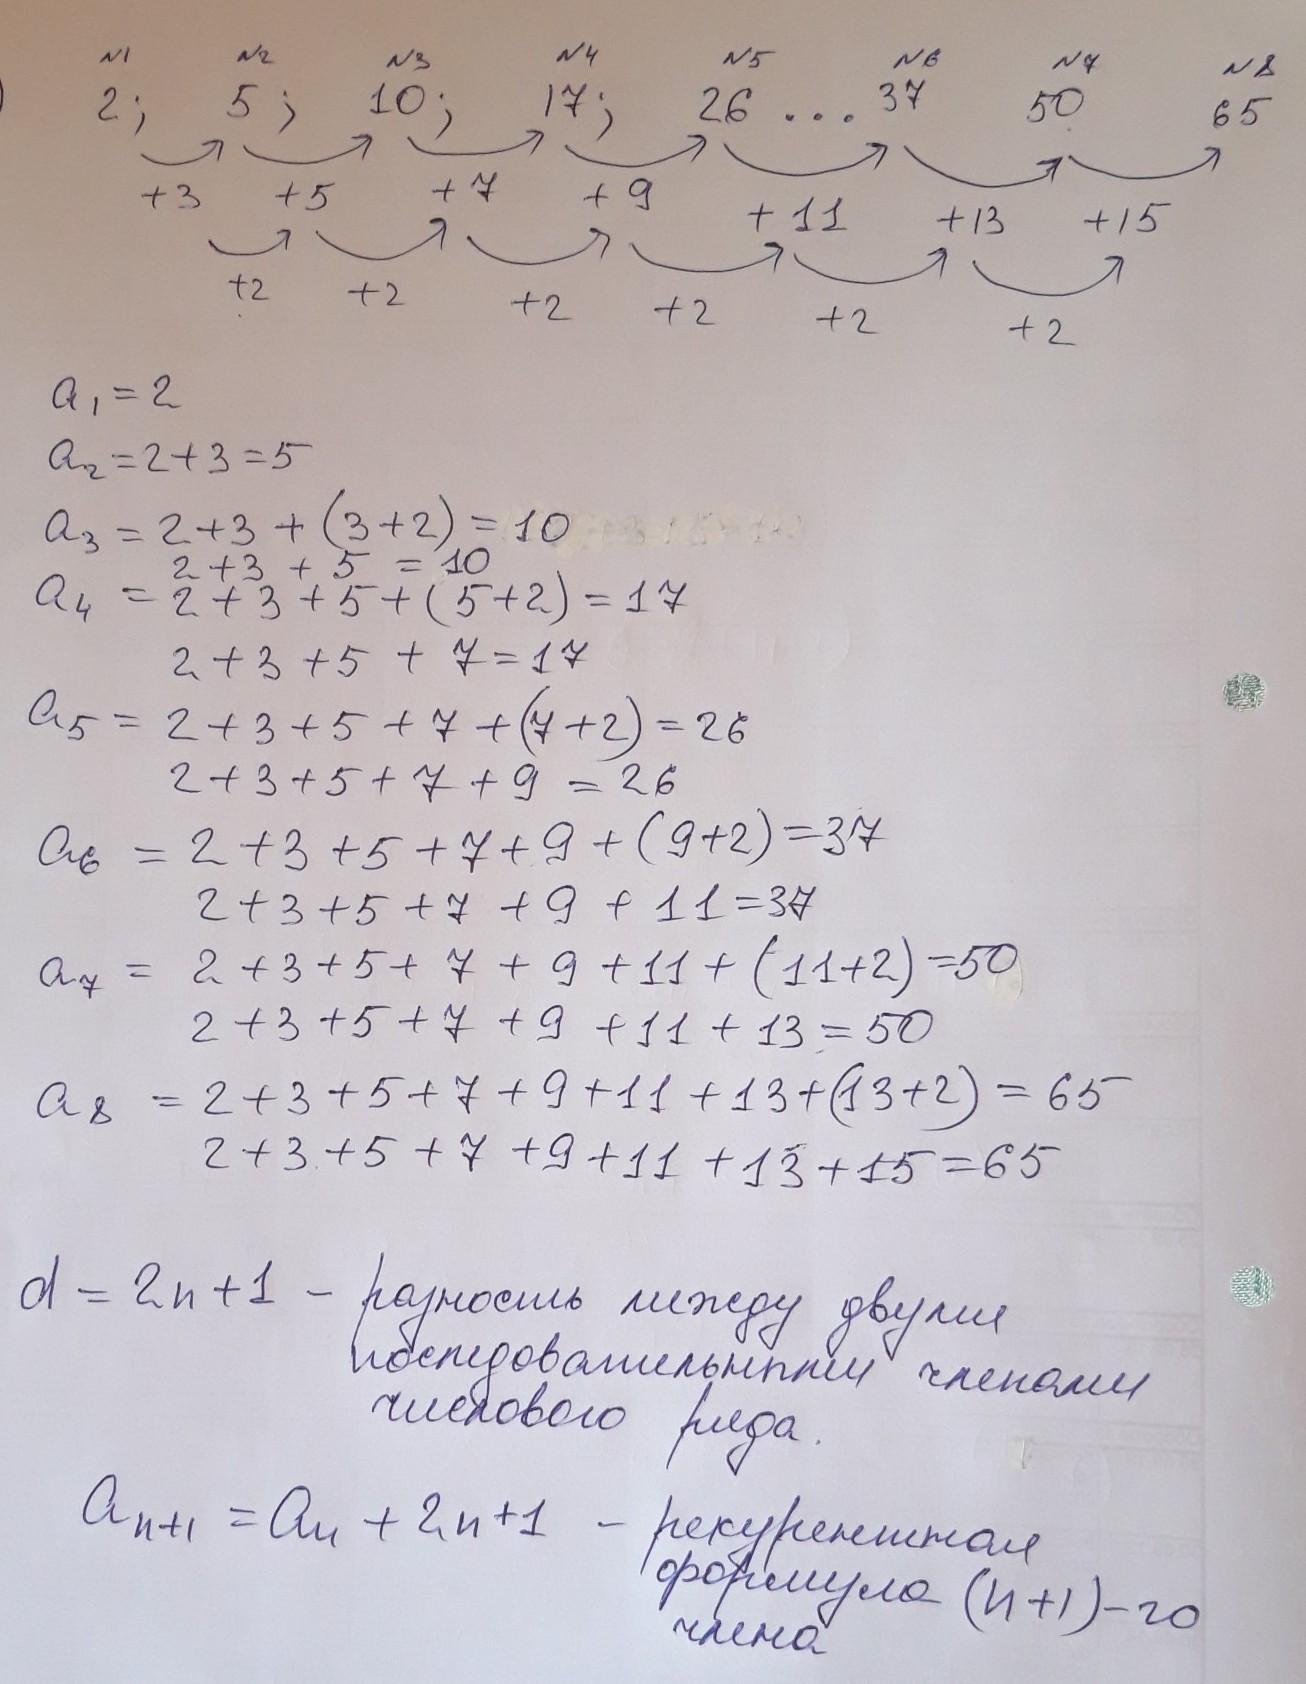 N1 N2 N3 N4 N5 N6 N7 N8
2; 5; 10; 17; 26 ... 37 50 65
+3 +5 +7 +9 +11 +13 +15
+2 +2 +2 +2 +2 +2
a₁ = 2
a₂ = 2+3 = 5
a₃ = 2+3 + (3+2) = 10
2+3 + 5 = 10
a₄ = 2+3+5+(5+2) = 17
2+3+5 + 7 = 17
a₅ = 2+3+5 + 7 + (7+2) = 26
2+3+5+7+9 = 26
a₆ = 2+3+5+7+9+(9+2) = 37
2+3+5+7+9+11 = 37
a₇ = 2+3+5+7+9+11+(11+2) = 50
2+3+5+7+9+11+13 = 50
a₈ = 2+3+5+7+9+11+13+(13+2) = 65
2+3+5+7+9+11+13+15 = 65
d = 2n+1 – разность между двумя
последовательными членами
числового ряда.
aₙ₊₁ = aₙ + 2n+1 – рекурентная
формула (n+1)-го
члена